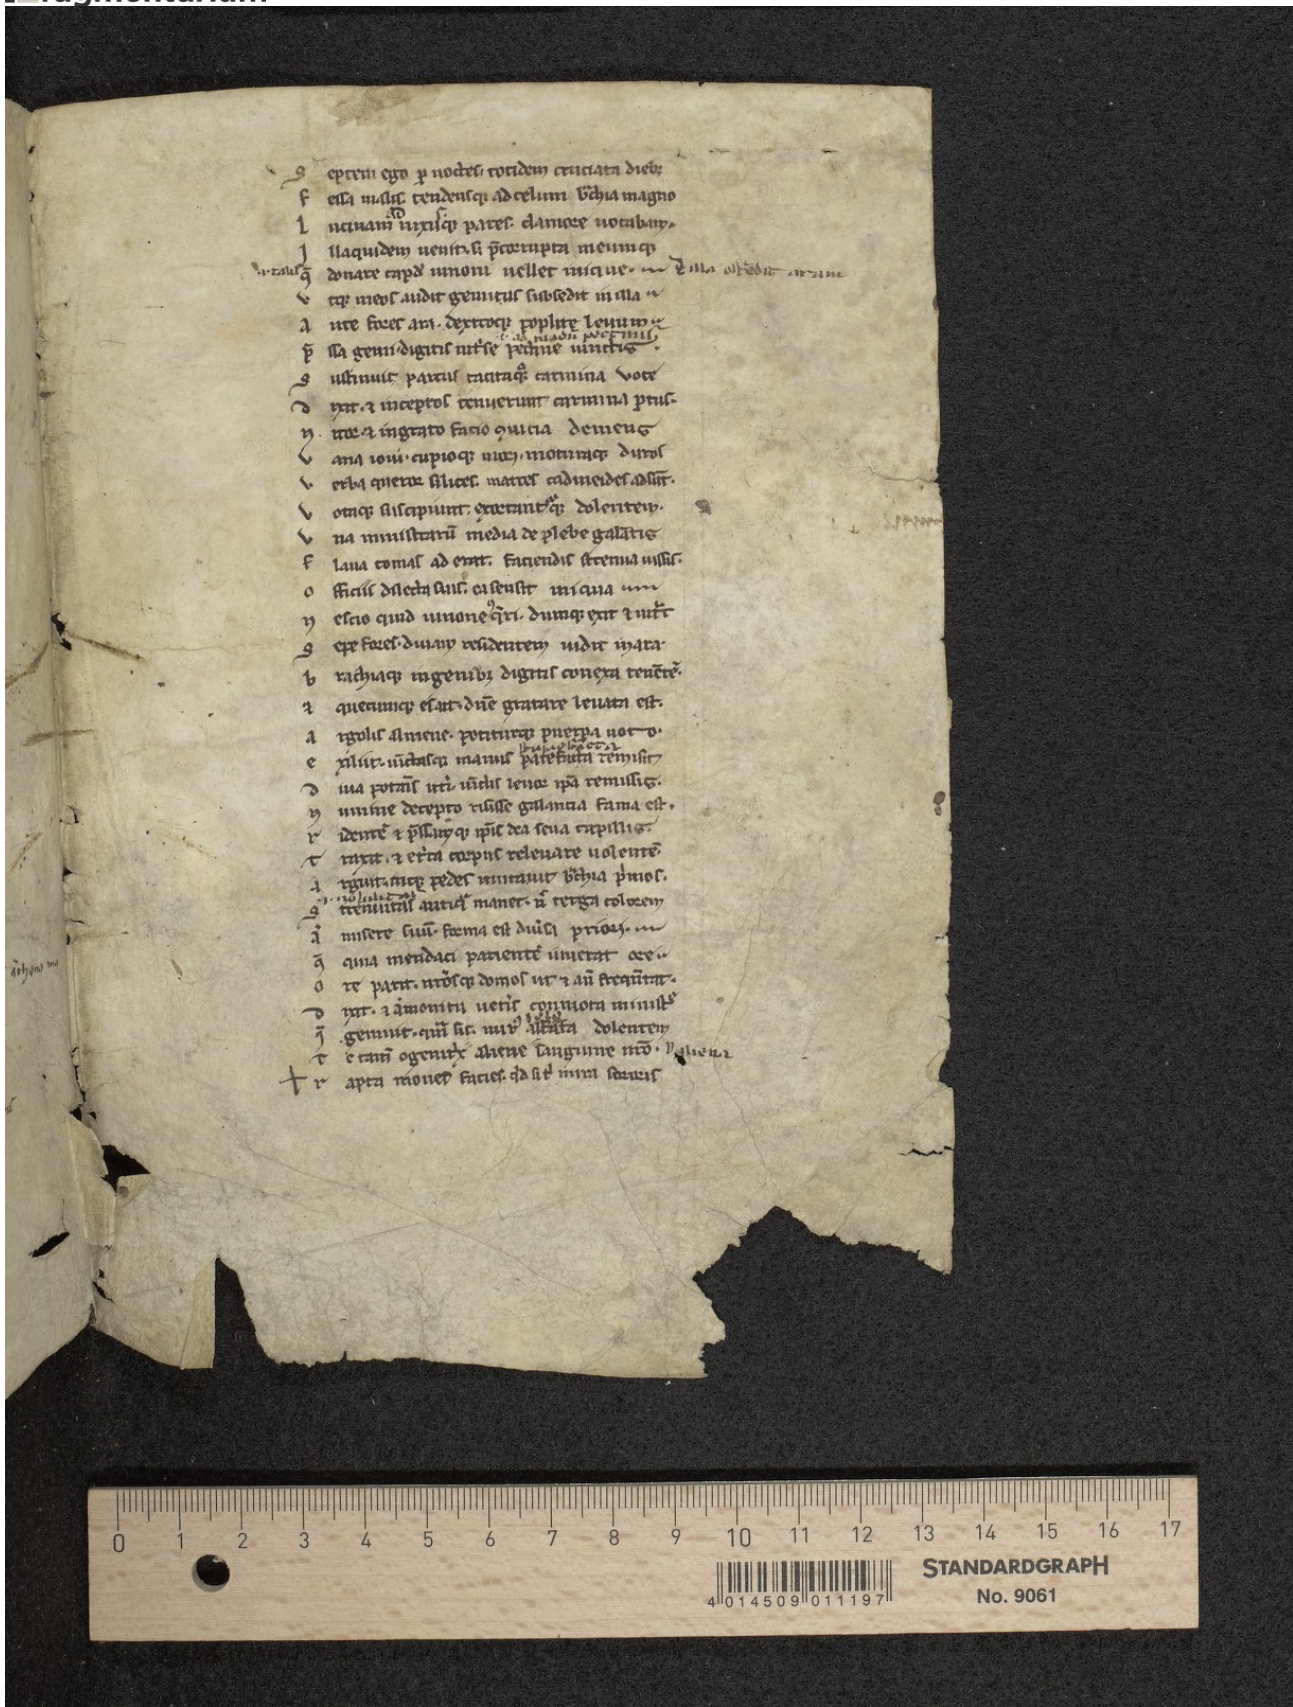 S eptem ego ꝑ noctes. totidem cruciata dieb;
F essa malis. tendensq; ad celum b̾chia magno
L ucinam nixusq; pares. clamore uocabam.
I llaquidem uenit. s; p̄corrupta meumq;
q̄ donare capđ iunoni uellet inique.
v tq; meos audit gemitus subsedit in illa
A nte fores ara. dextroq; poplite leuum
p̄ ssa genu. digitis int̾se pectine iunctis
S ustinuit partus tacitaq; carmina voce
D ixit. ⁊ inceptos tenuerunt carmina ptus.
N itor. ⁊ ingrato facio ꝯuicia demens
V ana ioui. cupioq; mori. moturaq; duros
V erba queror silices. matres cadmeides adsūt.
V otaq; suscipiunt. exortantq; dolentem.
V na ministrarū media de plebe galātis
F laua comas ad erat. faciendis strenua iussis.
O fficiis dilecta suis. ea sensit iniqua
N escio quid iunone g̾ri. dumq; exit ⁊ int̾t
S epe fores. diuam residentem uidit in ara.
b rachiaq; ingenib; digitis conexa tenētē.
⁊ quecumq; es ait. dn̄e gratare leuata est.
A rgolis almene. potiturq; puerpa uoto.
E xiliit. iūctasq; manus patefacta remisit
D iua potens uteri. uīclis leuor ipa remissis.
N umine decepto risisse galantida fama est.
R identē ⁊ p̄nsamq; ip̄is dea seua capillis.
T raxit. ⁊ et̾ra corpus releuare uolentē
A rguit. inq; pedes mutauit b̾chia p̾mos.
S trenuitas antiq̾ manet. n̄ terga colorem
A misere suū. forma est diu̾sa priori.
q̄ quia mendaci parientē iuuerat ore
O re parit. nr̄osq; domos ut ⁊ an̄ frequētat.
D ixit. ⁊ amonitu uet̾is conmota ministᵉ
q̄ gemuit. quā sic nurᵘˢ affata dolentem
T e tam̄ o genitx̾ aliene sanguine nr̄o.
R apta mouet facies. qđ si t̾ mira sororis
STANDARDGRAPH
No. 9061
0 1 2 3 4 5 6 7 8 9 10 11 12 13 14 15 16 17
4 014509 011197